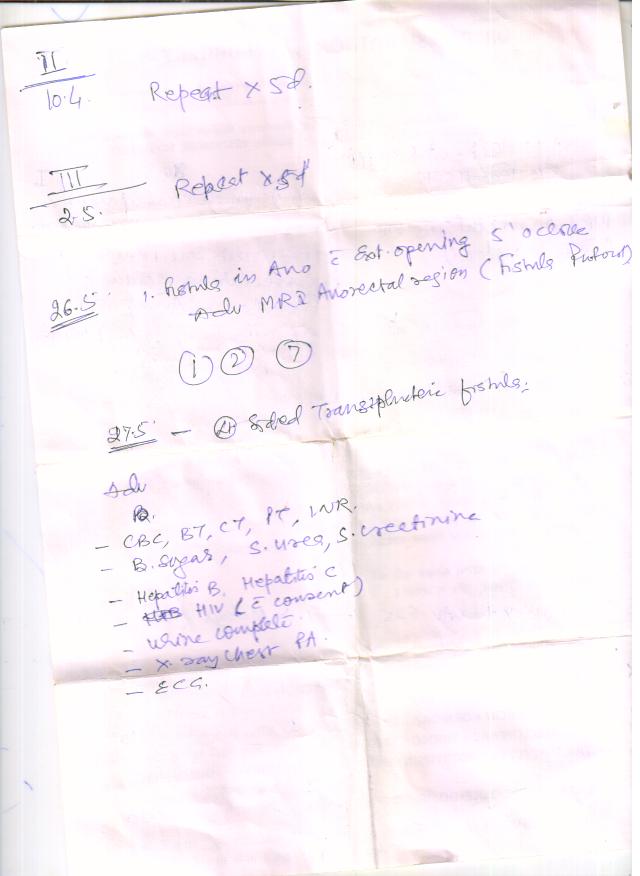 II
10.4. Repeat x 5d.
III
2.5. Repeat x 5d
26.5 1. Fistula in Ano c̄ Ext. opening 5 o'clock
Adv MRI Anorectal region (Fistula Protocol)
1 2 7
27.5 - Lt sided Transsphincteric fistula.
Adv
- CBC, BT, CT, PT, INR.
- B. Sugar, S. urea, S. creatinine
- Hepatitis B, Hepatitis C
- HIV (c̄ consent)
- Urine complete.
- X-ray Chest PA.
- ECG.